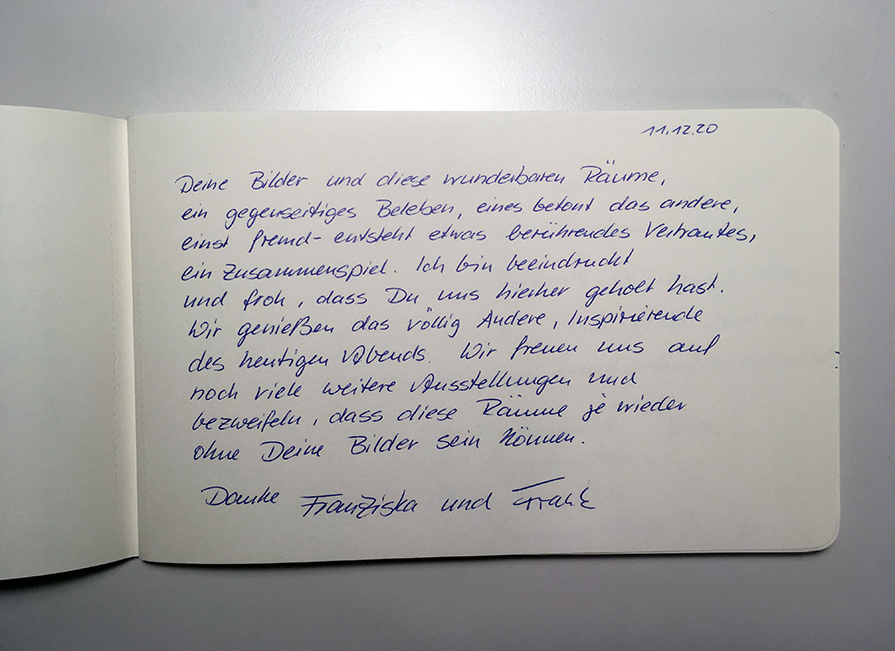 11.12.20
Deine Bilder und diese wunderbaren Räume,
ein gegenseitiges Beleben, eines betont das andere,
einst fremd - entsteht etwas berührendes Vertrautes,
ein Zusammenspiel. Ich bin beeindruckt
und froh, dass Du uns hierher geholt hast.
Wir genießen das völlig Andere, Inspirierende
des heutigen Abends. Wir freuen uns auf
noch viele weitere Ausstellungen und
bezweifeln, dass diese Räume je wieder
ohne Deine Bilder sein können.
Danke Franziska und Frank